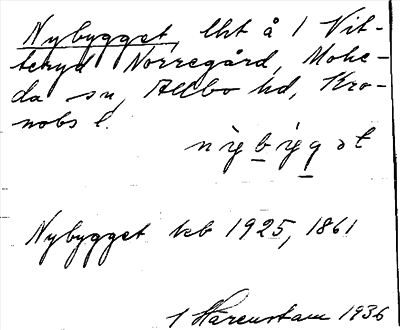 Nybygget, lht å 1 Vit-
teryd Norregård, Mohe-
da sn, Allbo hd, Kro-
nobs l.
Nybygget keb 1925, 1861
1 Harenstam 1936